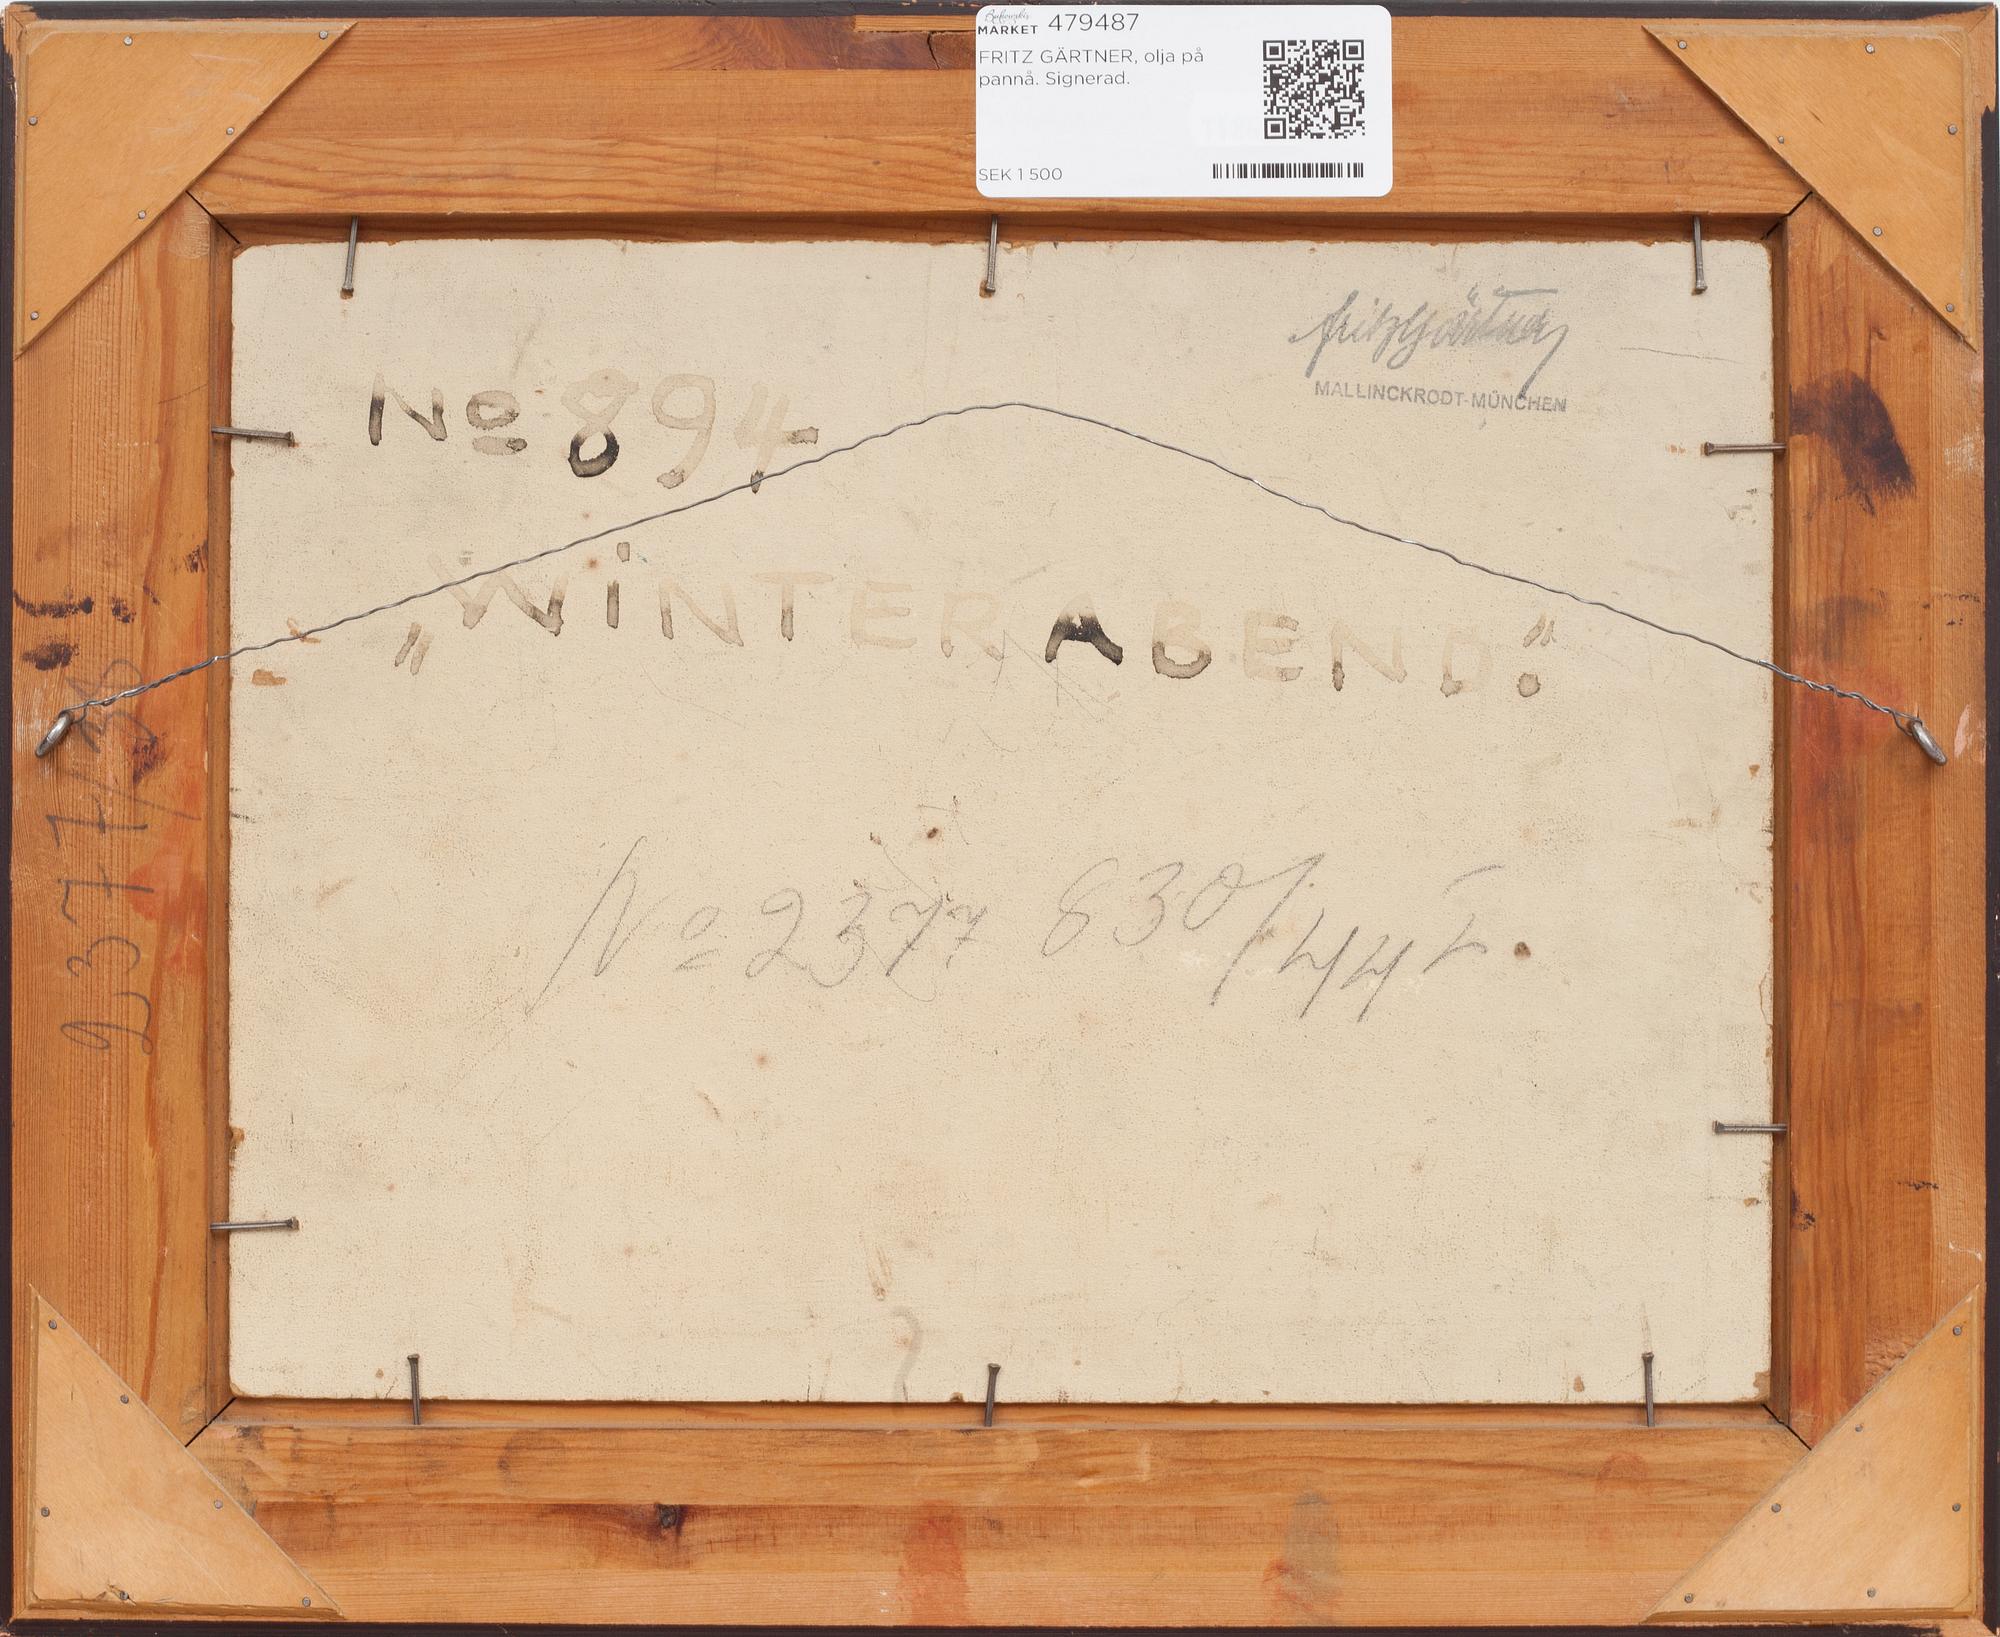 Bukowskis
MARKET 479487
FRITZ GÄRTNER, olja på
pannå. Signerad.
SEK 1 500
Fritz Gärtner
MALLINCKRODT-MÜNCHEN
No 894
„WINTERABEND."
No 2377 830/44
2377/38